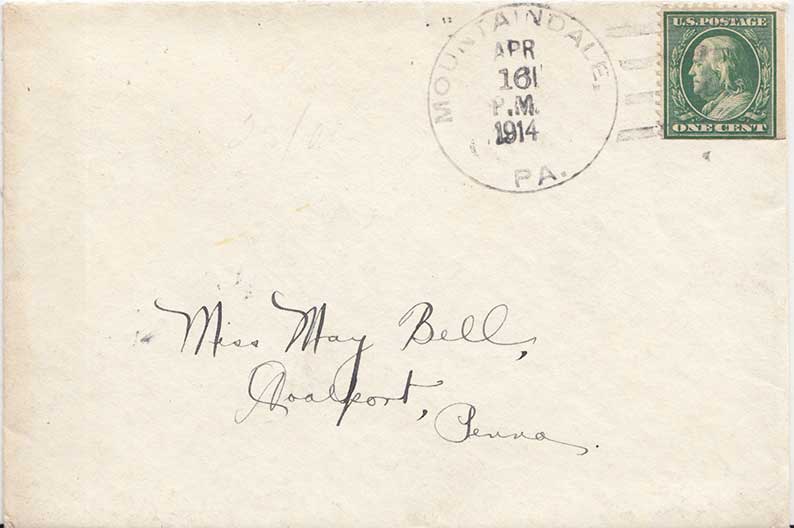 MOUNTAINDALE,
APR
16
P.M.
1914
PA.
U.S. POSTAGE
ONE CENT
Miss May Bell,
Coalport,
Penna.